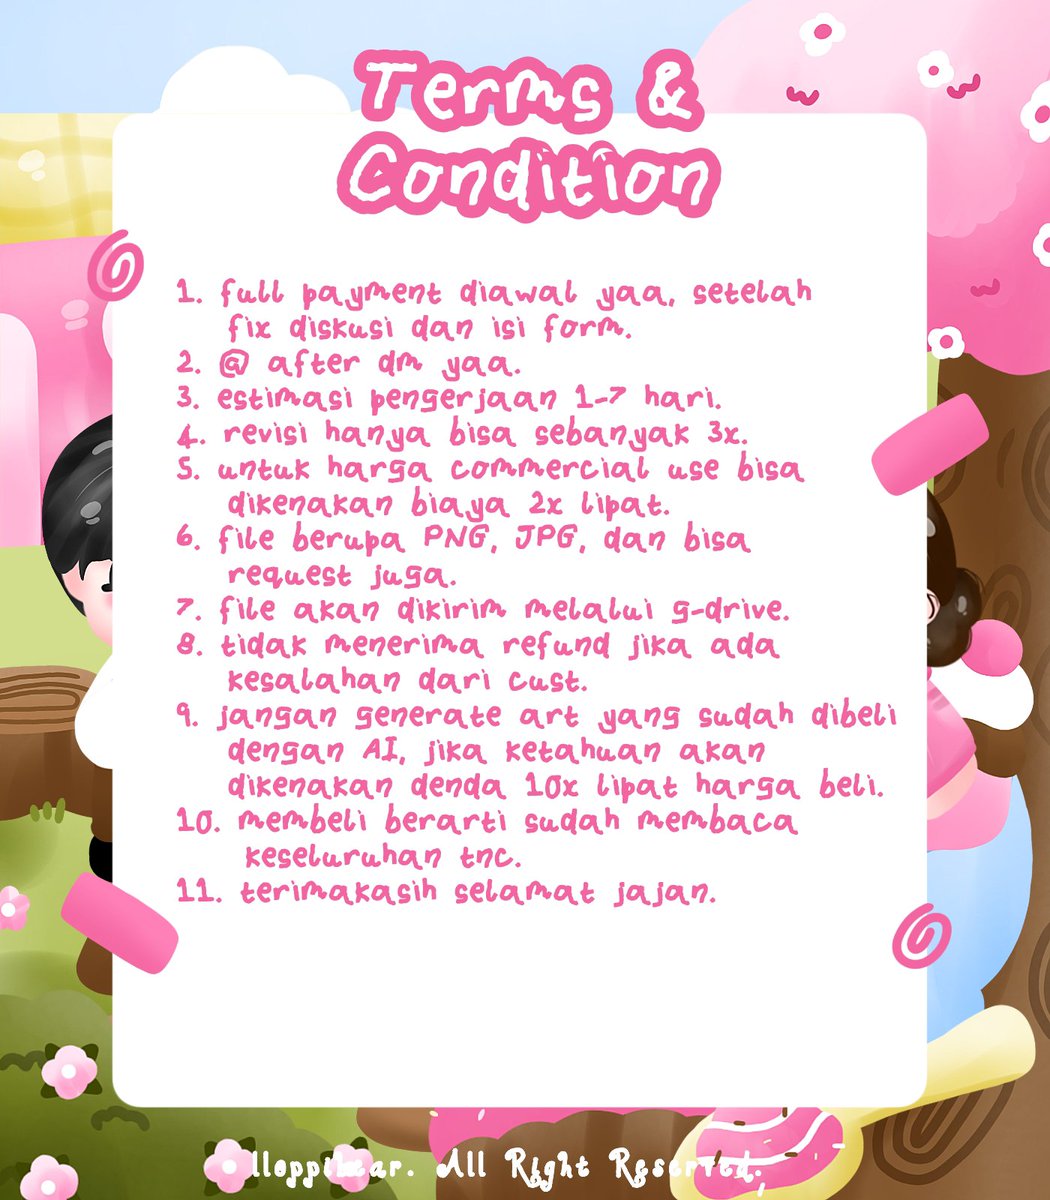 Terms &
Condition
1. full payment diawal yaa, setelah
fix diskusi dan isi form.
2. @ after dm yaa.
3. estimasi pengerjaan 1-7 hari.
4. revisi hanya bisa sebanyak 3x.
5. untuk harga commercial use bisa
dikenakan biaya 2x lipat.
6. file berupa PNG, JPG, dan bisa
request juga.
7. file akan dikirim melalui g-drive.
8. tidak menerima refund jika ada
kesalahan dari cust.
9. jangan generate art yang sudah dibeli
dengan AI, jika ketahuan akan
dikenakan denda 10x lipat harga beli.
10. membeli berarti sudah membaca
keseluruhan tnc.
11. terimakasih selamat jajan.
All Right Reserved.